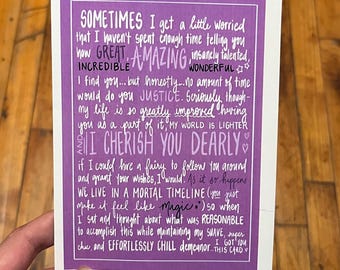 SOMETIMES I get a little worried
that I haven't spent enough time telling you
how GREAT, AMAZING, insanely talented,
INCREDIBLE WONDERFUL
I find you...but honestly...no amount of
time would do you JUSTICE. Seriously though-
my life is so greatly improved having
you as a part of it, MY WORLD IS LIGHTER
AND I CHERISH YOU DEARLY
if I could hire a fairy to follow you around
and grant your wishes, I would. As it so happens
WE LIVE IN A MORTAL TIMELINE (you just
make it feel like magic) so when
I sat and thought about what was REASONABLE
to accomplish this while maintaining my suave, super
chic and EFFORTLESSLY CHILL demeanor, I GOT YOU
THIS CARD